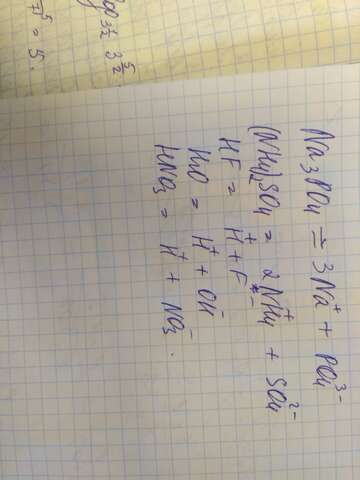 Na₃PO₄ ⇌ 3Na⁺ + PO₄³⁻
(NH₄)₂SO₄ = 2NH₄⁺ + SO₄²⁻
HF = H⁺ + F⁻
H₂O = H⁺ + OH⁻
HNO₃ = H⁺ + NO₃⁻.
= 5.